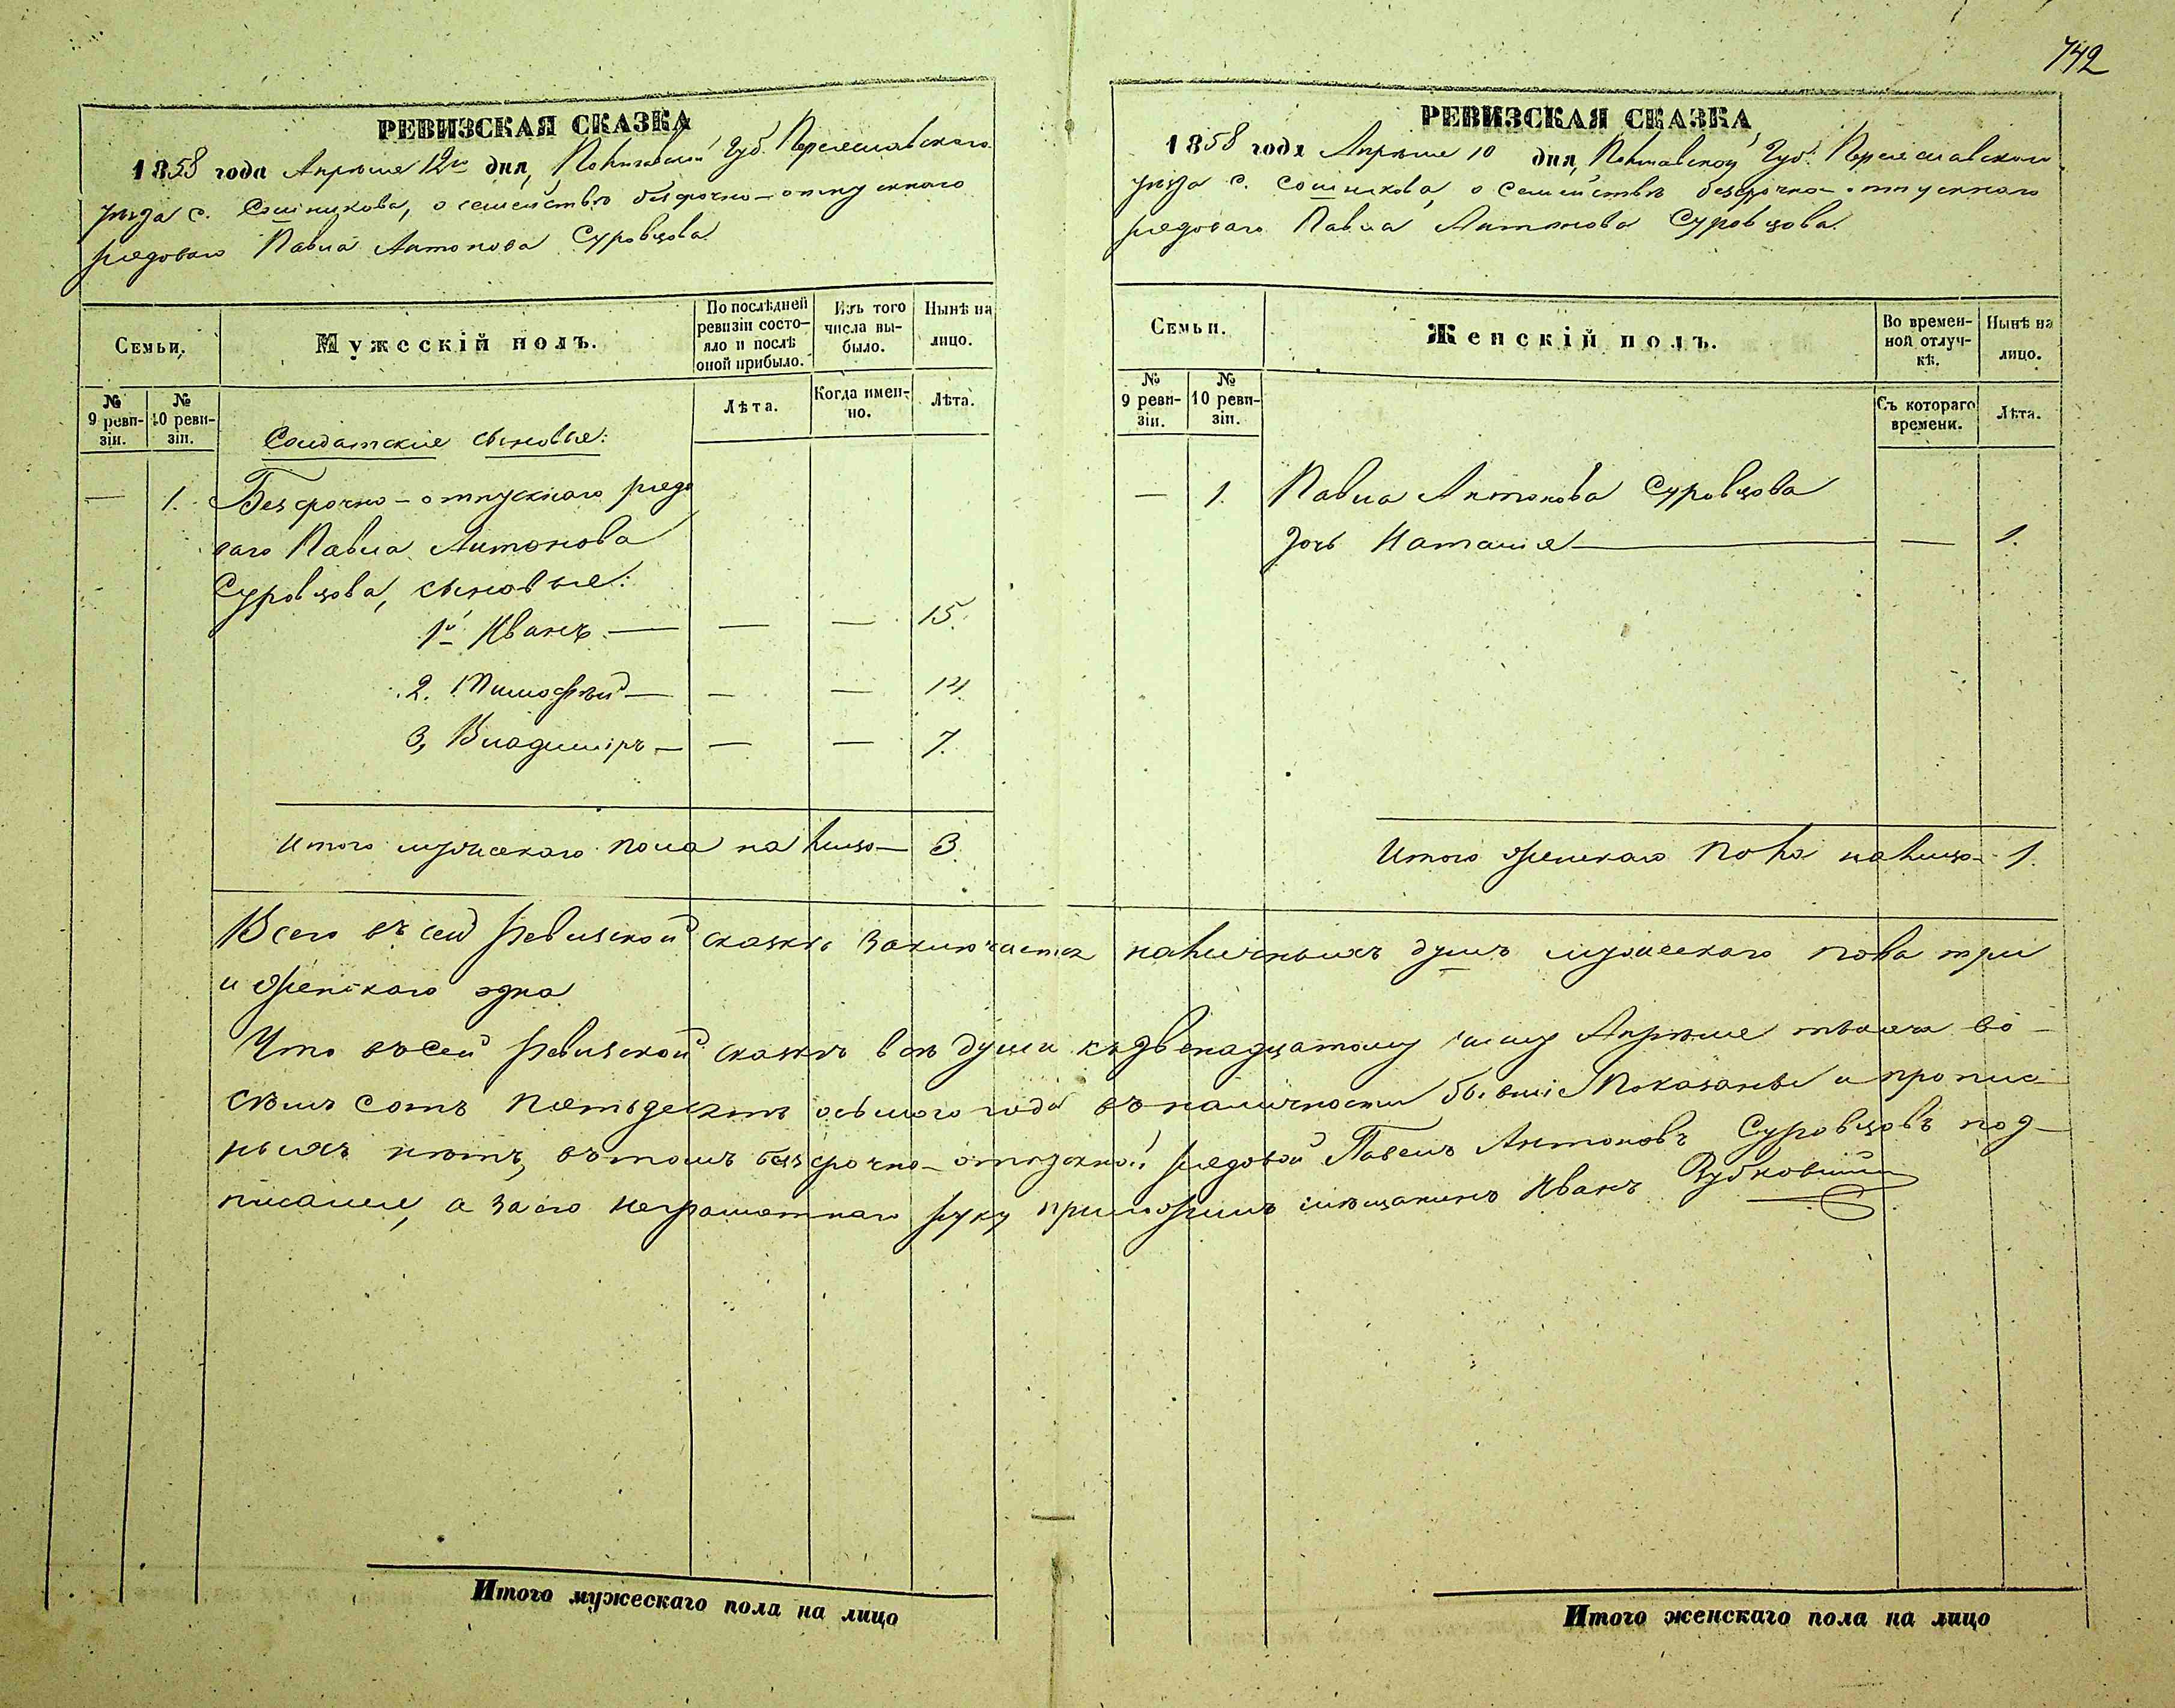 742
РЕВИЗСКАЯ СКАЗКА
1858 года Апрѣля 12го дня, Полтавской Губ. Переяславскаго
уезда с. Сошникова, о семействѣ безсрочно-отпускнаго
рядоваго Павла Антонова Суровцова
Семьи.
Мужескій полъ.
По послѣдней
ревизіи состо-
яло и послѣ
оной прибыло.
Изъ того
числа вы-
было.
Нынѣ на
лицо.
№
9 реви-
зіи.
№
10 реви-
зіи.
Лѣта.
Когда имен-
но.
Лѣта.
Солдатские сыновья:
— 1. Безсрочно-отпускнаго рядо
ваго Павла Антонова
Суровцова, сыновья:
1й Иванъ — — — 15.
2. Тимофѣй — — — 14.
3, Владиміръ — — — 7.
Итого мужескаго пола на лицо — 3.
РЕВИЗСКАЯ СКАЗКА
1858 года Апрѣля 10 дня, Полтавской Губ. Переяславскаго
уезда с. Сошникова, о семействѣ безсрочно-отпускнаго
рядоваго Павла Антонова Суровцова.
Семьи.
Женскій полъ.
Во времен-
ной отлуч-
кѣ.
Нынѣ на
лицо.
№
9 реви-
зіи.
№
10 реви-
зіи.
Съ котораго
времени.
Лѣта.
— 1. Павла Антонова Суровцова
дочь Наталия — — 1.
Итого женскаго пола на лицо — 1.
Всего въ сей ревизской сказкѣ заключается наличныхъ душъ мужескаго пола три
и женскаго одна
Что въ сей ревизской сказкѣ всѣ души къ двенадцатому числу Апрѣля тысяча во-
сѣмъ сотъ пятьдесятъ осьмого года въ наличности бывшіе показаны и пропис
ныхъ нѣтъ, въ томъ безсрочно-отпускной рядовой Павелъ Антоновъ Суровцовъ под-
писался, а за его неграмотнаго руку приложилъ мѣщанинъ Иванъ Зубковский
Итого мужескаго пола на лицо
Итого женскаго пола на лицо